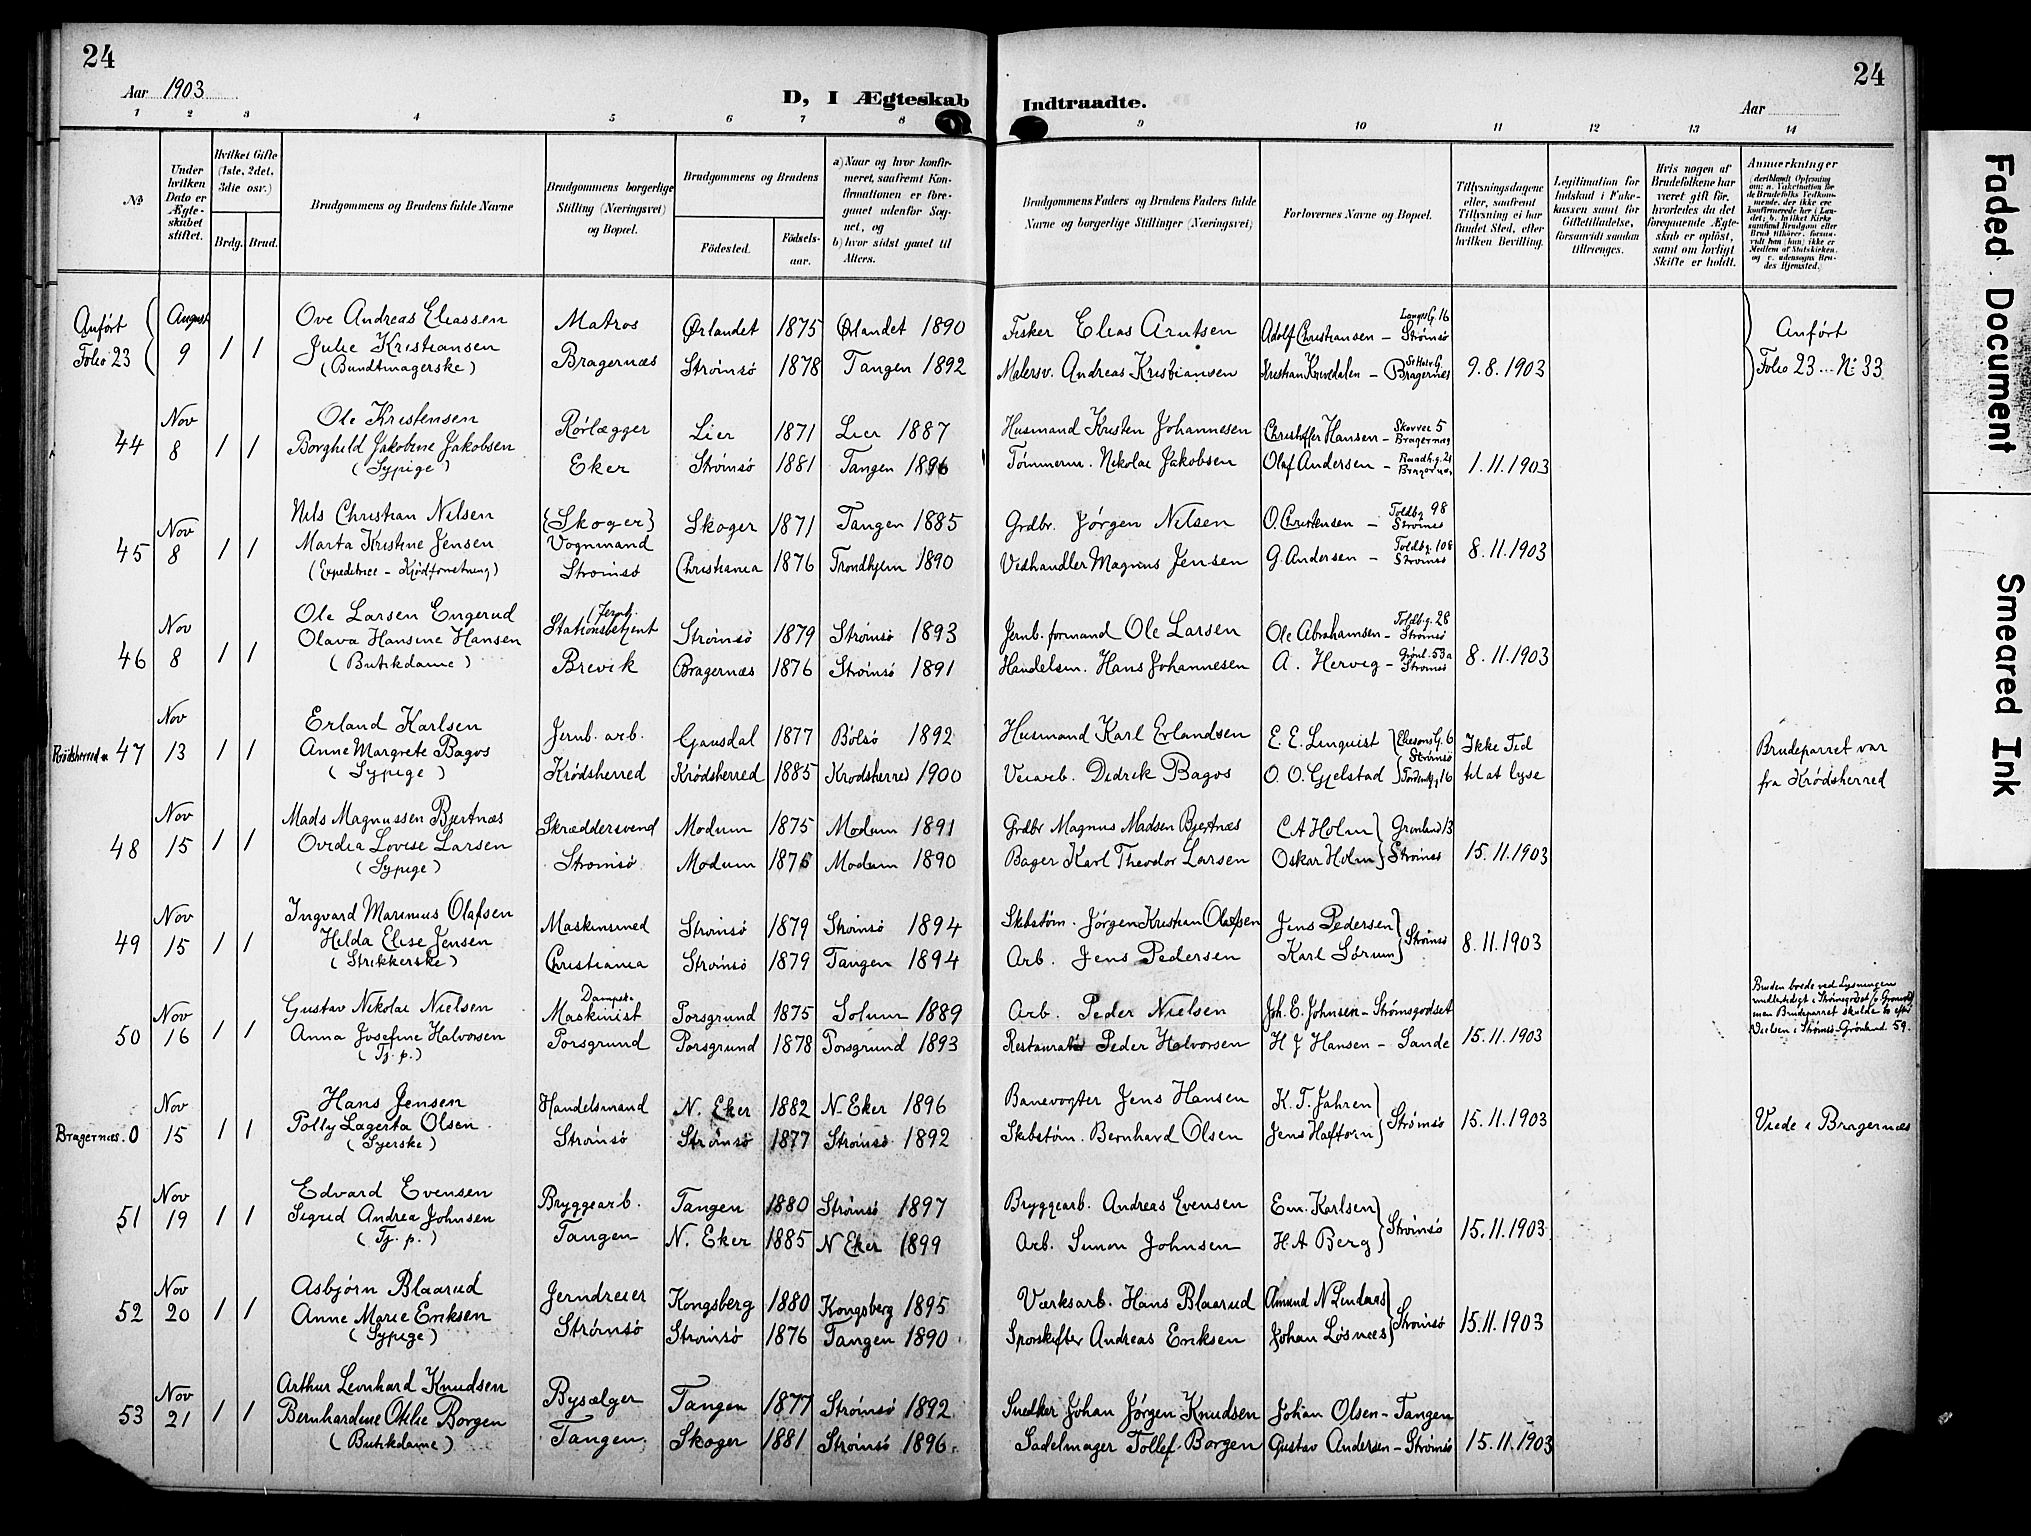 24
Aar 1903
D, I Ægteskab
Indtraadte.
Aar
24
1 2 3 4 5 6 7 8 9 10 11 12 13 14
№
Under hvilken Dato er Ægteskabet stiftet.
Hvilket Gifte (1ste, 2det, 3die osv.)
Brdg. Brud.
Brudgommens og Brudens fulde Navne
Brudgommens borgerlige Stilling (Næringsvei) og Bopæl.
Brudgommens og Brudens
Födested.
Födselsaar.
a) Naar og hvor konfirmeret, saafremt Konfirmationen er foregaaet udenfor Sognet, og
b) hvor sidst gaaet til Alters.
Brudgommens Faders og Brudens Faders fulde Navne og borgerlige Stillinger (Næringsvei)
Forlovernes Navne og Bopæl.
Tillysningsdagene eller, saafremt Tillysning ei har fundet Sted, efter hvilken Bevilling.
Legitimation for Indskud i Enkekassen samt for Giftetilladelse, forsaavidt saadan tiltrænges.
Hvis nogen af Brudefolkene har været gift för, hvorledes da det foregaaende Ægteskab er oplöst, samt om lovligt Skifte er holdt.
Anmerkninger
(deriblandt Oplysning om: a. Vakcination for de Brudefolks Vedkommende, der ikke ere konfirmerede her i Landet; b. hvilket Kirkesamfund Brudgom eller Brud tilhörer, forsaavidt han (hun) ikke er Medlem af Statskirken, og c. udensogns Brudes Hjemsted.)
Anført Folio 23 August 9 1 1 Ove Andreas Eliassen Matros Ørlandet 1875 Ørlandet 1890 Fisker Elias Arntsen Adolf Christiansen – Langes G. 16 Strømsö Anfört
Julie Kristiansen (Bundtmagerske) Bragernæs Strömsö 1878 Tangen 1892 Malersv. Andreas Kristiansen Kristian Knivedalen – St Halv G. Bragernes 9.8.1903 Folio 23 – № 33
44 Nov 8 1 1 Ole Kristensen Rörlægger Lier 1871 Lier 1887 Husmand Kristen Johannesen Christoffer Hansen – Bragernes
Borghild Jakobine Jakobsen (Sypige) Eker Strømsö 1881 Tangen 1896 Tömmerm. Nikolai Jakobsen Olaf Andersen – Raadh.g. 21 Bragernæs 1.11.1903
45 Nov 8 1 1 Nils Christian Nilsen {Skoger} Vognmand Skoger 1871 Tangen 1885 Grdbr. Jörgen Nilsen O. Christensen – Toldbg 98 Strömsö
Marta Kristine Jensen (Expeditrice – Kjödforretning) Strömsö Christiania 1876 Trondhjem 1890 Vedhandler Magnus Jensen G. Andersen – Toldbg. 108 Strömsö 8.11.1903
46 Nov 8 1 1 Ole Larsen Engerud (Jernb. Stationsbetjent Strömsö 1879 Strømsö 1893 Jernb. formand Ole Larsen Ole Abrahamsen – Toldbg. 28 Strömsö
Olava Hansine Hansen (Butikdame) Brevik Bragernæs 1876 Strømsö 1891 Handelsm. Hans Johannesen A. Hervig – Grönl. 53a Strömsö 8.11.1903
Krödsherred 47 Nov 13 1 1 Erland Karlsen Jernb. arb. Gausdal 1877 Bolsö 1892 Husmand Karl Erlandsen E. E. Linquist G. 6 Strömsö Ikke Tid Brudeparret var
Anne Margrete Bagos (Sypige) Krödsherred Krödsherred 1885 Krödsherred 1900 Veiarb. Didrik Bagos O. O. Gjelstad Tordenskj.g. 16 til at lyse fra Krødsherred
48 Nov 15 1 1 Mads Magnussen Bjertnæs Skræddersvend Modum 1875 Modum 1891 Grdbr Magnus Madsen Bjertnæs C A Holm Grönland 13
Ovidia Lovise Larsen (Sypige) Strömsö Modum 1876 Modum 1890 Bager Karl Theodor Larsen Oskar Holm Strömsö 15.11.1903
49 Nov 15 1 1 Ingvard Marinius Olafsen Maskinsmed Strömsö 1879 Strömsö 1894 Skibstöm. Jörgen Kristian Olafsen Jens Pedersen Strömsö
Hilda Elise Jensen (Strikkerske) Christiania Strömsö 1879 Tangen 1894 Arb. Jens Pedersen Karl Sörum 8.11.1903
50 Nov 16 1 1 Gustav Nikolai Nielsen Dampsk. Maskinist Porsgrund 1875 Solum 1889 Arb. Peder Nielsen Joh. E. Johnsen – Strömsgodset Bruden boede ved Lysningen midlertidigt i Strømsgodset
Anna Josefine Halvorsen (Tj. p.) Porsgrund Porsgrund 1878 Porsgrund 1893 Restauratør Peder Halvorsen H J Hansen – Sande 15.11.1903 men Brudeparret skulde bo efter Vielsen i Strömsö – Grönland 59.
Bragernæs. 0 Nov 15 1 1 Hans Jensen Handelsmand N. Eker 1882 N. Eker 1896 Banevogter Jens Hansen K. T. Jahren Strömsö
Polly Lagerta Olsen (Syerske) Strømsö Strømsö 1877 Strømsö 1892 Skibstöm. Bernhard Olsen Jens Haftorn 15.11.1903 Viede i Bragernæs
51 Nov 19 1 1 Edvard Evensen Bryggearb. Tangen 1880 Strömsö 1897 Bryggearb. Andreas Evensen Em. Karlsen Strömsö
Sigrid Andrea Johnsen (Tj. p.) Tangen N. Eker 1885 N Eker 1899 Arb. Simon Johnsen H. A Berg 15.11.1903
52 Nov 20 1 1 Asbjörn Blaarud Jerndreier Kongsberg 1880 Kongsberg 1895 Værksarb. Hans Blaarud Amund N Lindaas Strömsö
Anne Marie Eriksen (Sypige) Strömsö Strömsö 1876 Tangen 1890 Sporskifter Andreas Eriksen Johan Lösnæs 15.11.1903
53 Nov 21 1 1 Arthur Leonhard Knudsen Bysælger Tangen 1877 Strömsö 1892 Snedker Johan Jörgen Knudsen Johan Olsen – Tangen
Bernhardine Otilie Borgen (Butikdame) Tangen Skoger 1881 Strömsö 1896 Sadelmager Tollef Borgen Gustav Andersen – Strømsö 15.11.1903
Faded Document
Smeared Ink